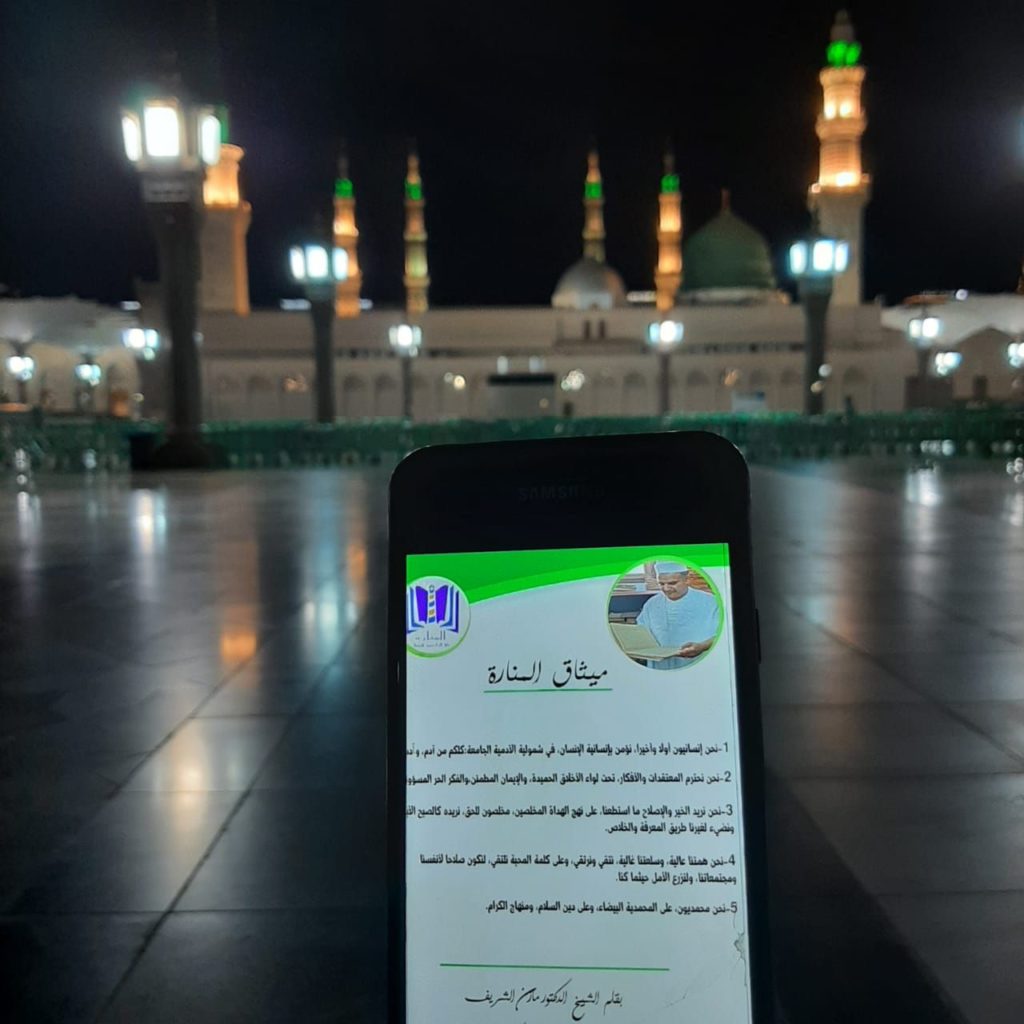 SAMSUNG
المنارة
ميثاق المنارة
1-نحن إنسانيون أولا وأخيرا، نؤمن بإنسانية الإنسان، في شمولية الآدمية الجامعة:كلكم من آدم، و
2-نحن نحترم المعتقدات والأفكار، تحت لواء الأخلاق الحميدة، والإيمان المطمئن،والفكر الحر
3-نحن نريد الخير والإصلاح ما استطعنا، على نهج الهداة المخلصين، مخلصون للحق، نريده كالصبح
ونضيء لغيرنا طريق المعرفة والخلاص.
4-نحن همتنا عالية، وسلعتنا غالية، نتقي ونرتقي، وعلى كلمة المحبة نلتقي، لنكون صلاحا لأنفسنا
ومجتمعاتنا، ولنزرع الأمل حيثما كنا.
5-نحن محمديون، على المحمدية البيضاء، وعلى دين السلام، ومنهاج الكرام.
بقلم الشيخ الدكتور مازن الشريف